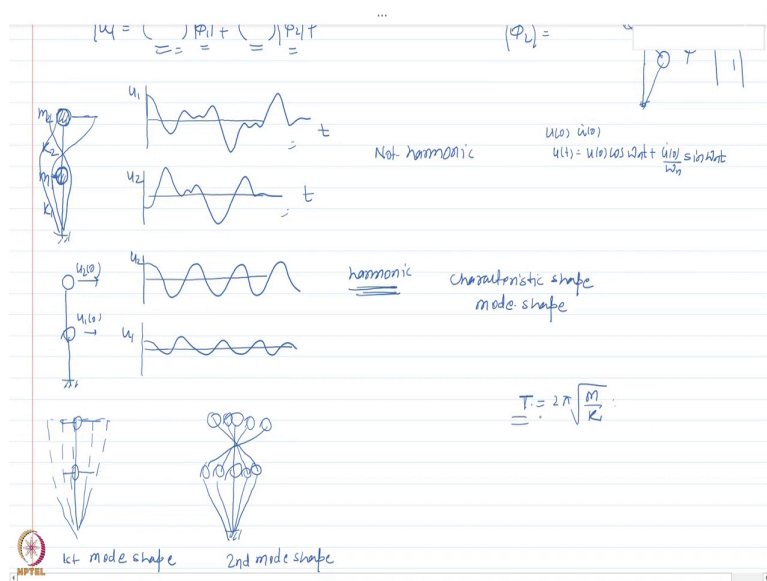 ...
|u| = ( ) |φ₁| + ( ) |φ₂| +
|φ₂| =
1
u₁
t
u₂
t
m₂
K₂
m₁
K₁
Not harmonic
u(0) u̇(0)
u(t) = u(0) cos ωnt + u̇(0)/ωn sin ωnt
u₂(0)
u₁(0)
u₂
u₁
harmonic
Characteristic shape
mode shape
T = 2π √(m/K)
1st mode shape
2nd mode shape
NPTEL